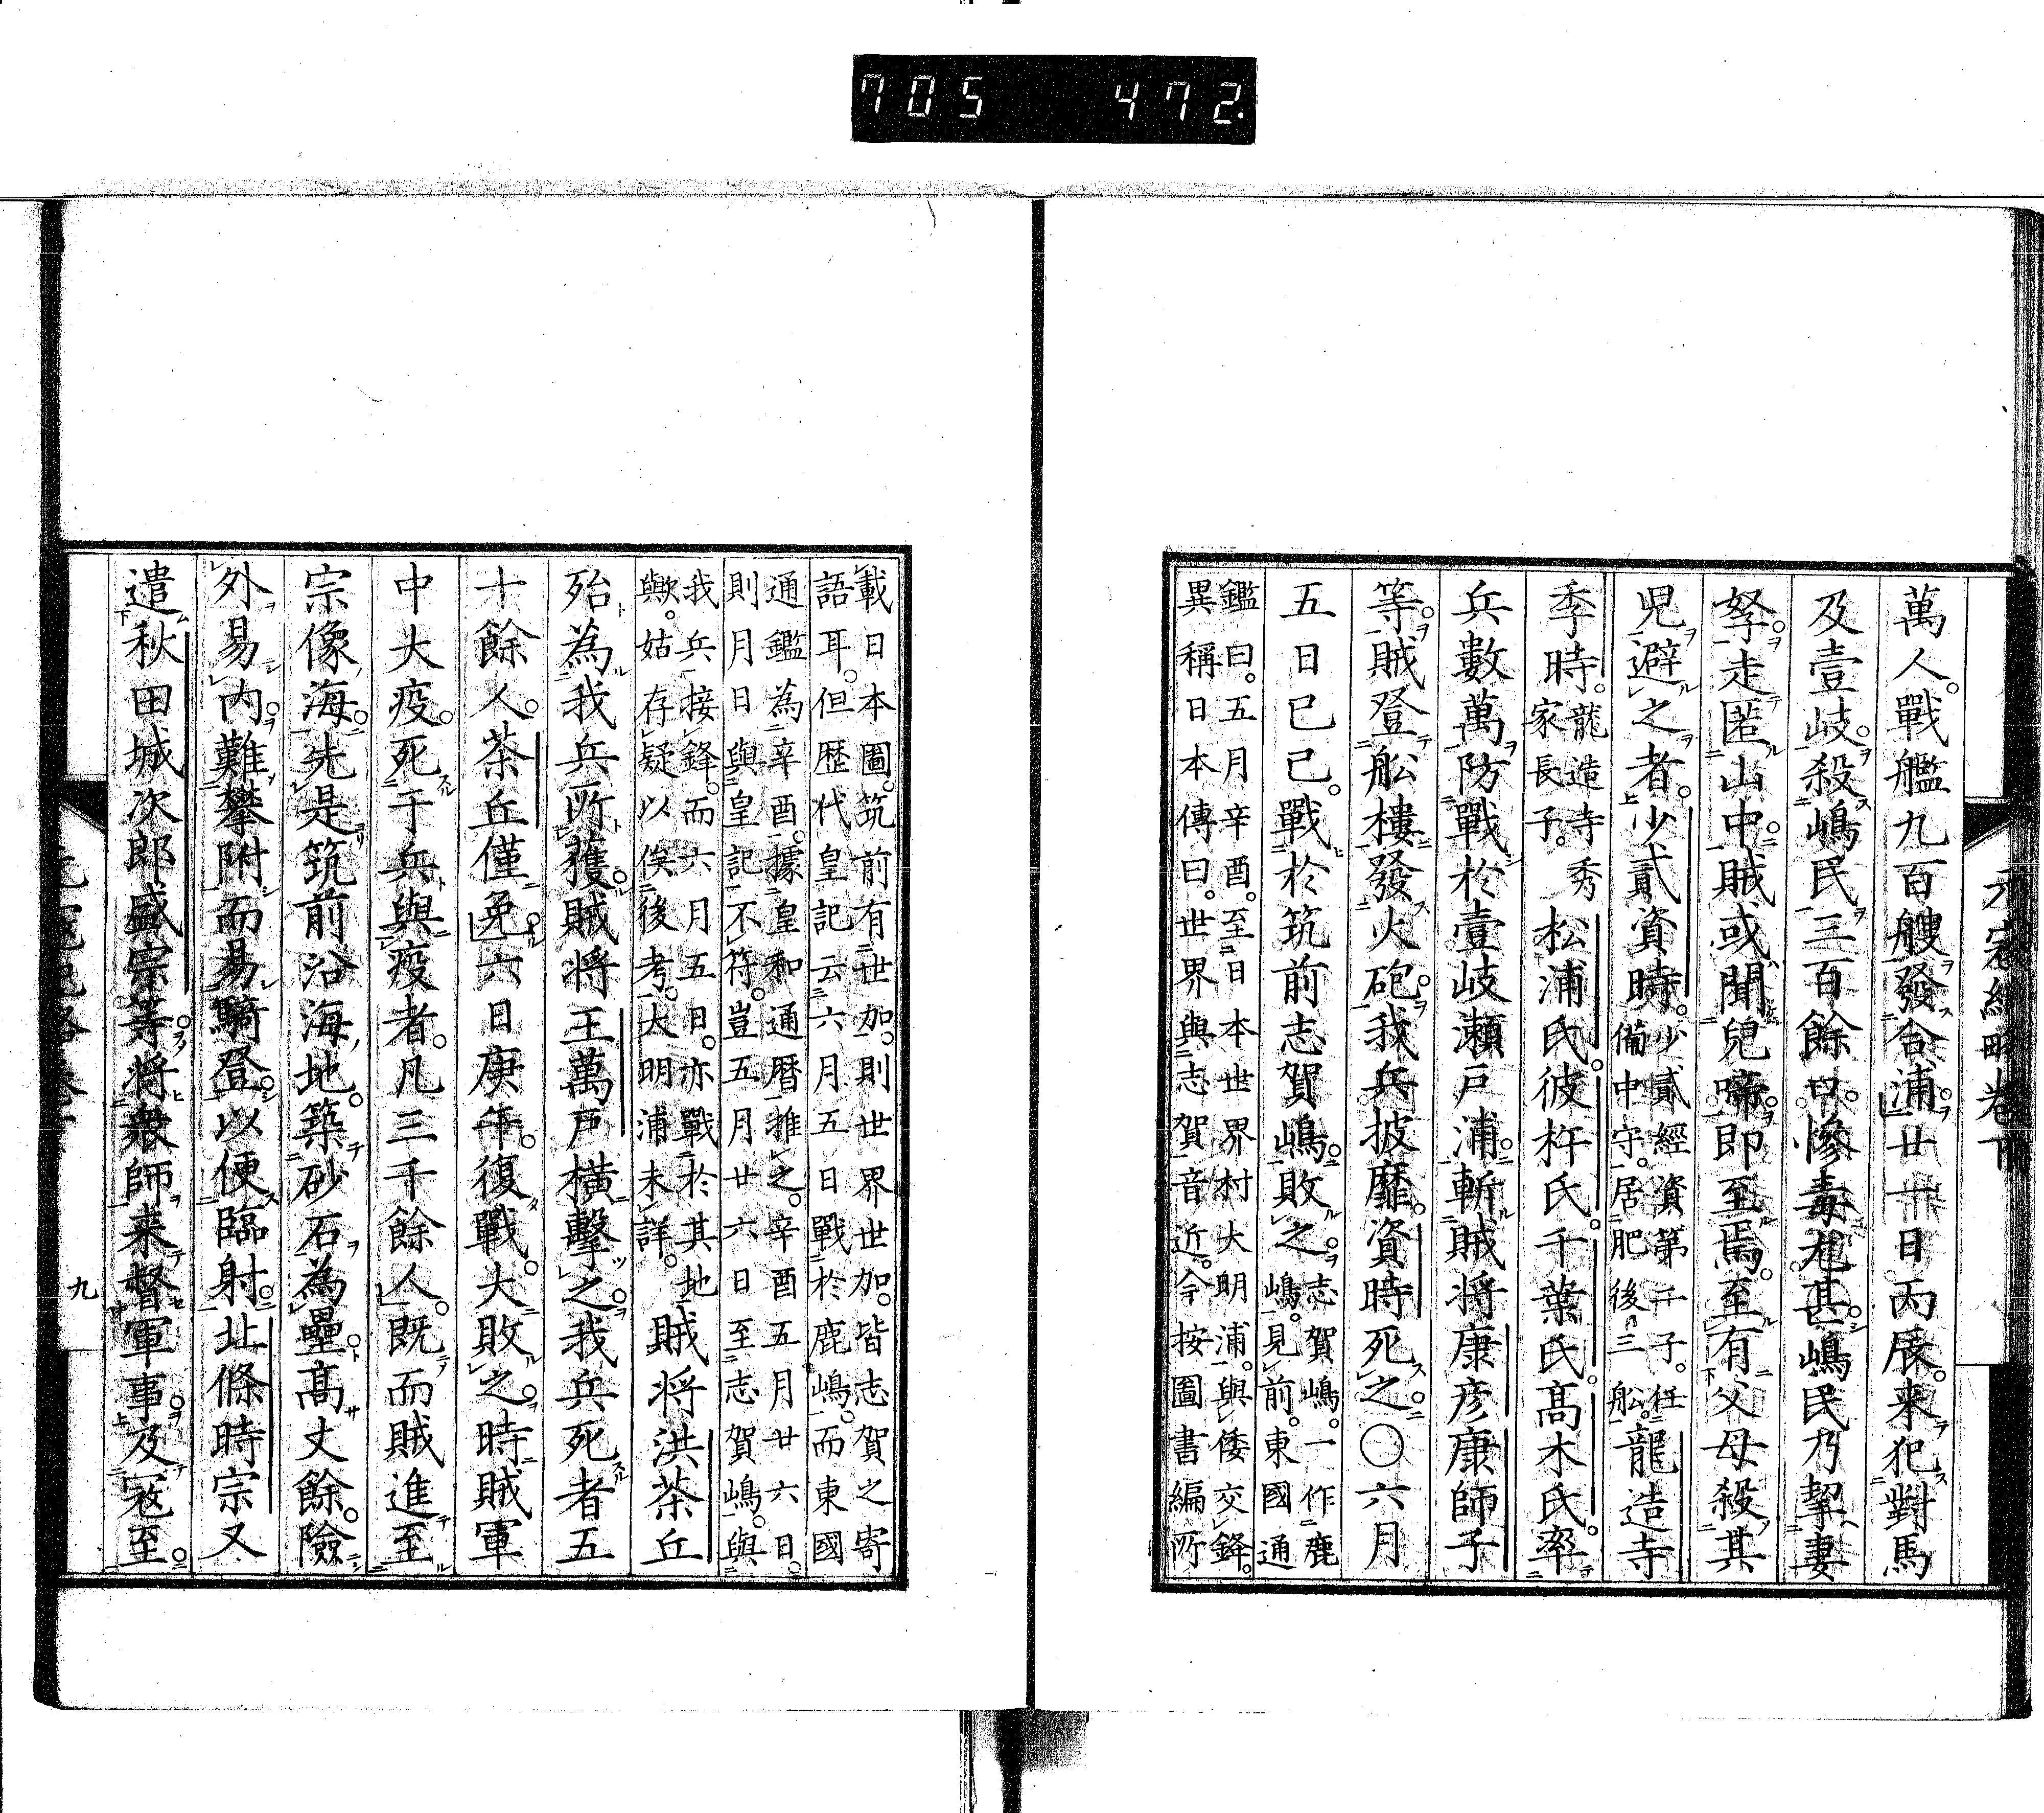 705 472.
元寇紀略卷下
萬人。戰艦九百艘發合浦。廿一日丙辰。来犯對馬
及壹岐。殺嶋民三百餘口。慘毒尤甚。嶋民乃挈妻
孥。走匿山中。賊或聞兒啼。即至焉。至有父母殺其
兒避之者。少貳資時。少貳經資第二子。任
備中守。居肥後三船。龍造寺
季時。龍造寺秀
家長子。松浦氏。彼杵氏。千葉氏。髙木氏。率
兵數萬防戰於壹岐瀨戸浦。斬賊将康彦康師子
等。賊登舩樓。發火砲。我兵披靡。資時死之〇六月
五日己巳。戰於筑前志賀嶋。敗之。志賀嶋。一作鹿
嶋。見前。東國通
鑑曰。五月辛酉。至日本世界村大明浦。與倭交鋒。
異稱日本傳曰。世界與志賀音近。今按圖書編所
載日本圖。筑前有世加。則世界世加。皆志賀之寄
語耳。但歴代皇記云。六月五日戰於鹿嶋。而東國
通鑑為辛酉。據皇和通暦推之。辛酉五月廿六日。
則月日與皇記不符。豈五月廿六日至志賀嶋。與
我兵接鋒。而六月五日。亦戰於其地
歟。姑存疑以俟後考。大明浦未詳。賊将洪茶丘
殆為我兵所獲。賊将王萬戸横擊之。我兵死者五
十餘人。茶丘僅免。六日庚午。復戰。大敗之。時賊軍
中大疫。死于兵與疫者。凡三千餘人。既而賊進至
宗像海。先是筑前沿海地。築砂石為壘。髙丈餘。險
外易内。難攀附而易騎登。以便臨射。北條時宗又
遣秋田城次郎盛宗等将衆師来督軍事。及寇至。
九